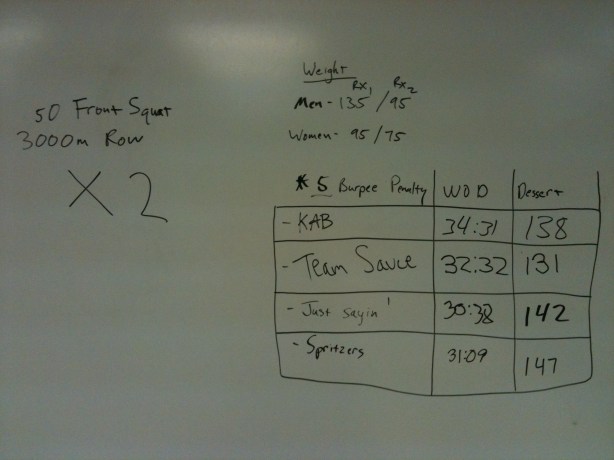 50 Front Squat
3000m Row
X 2
Weight
Rx1 Rx2
Men - 135 / 95
Women - 95 / 75
* 5 Burpee Penalty WOD Dessert
- KAB 34:31 138
- Team Sauce 32:32 131
- Just sayin' 30:38 142
- Spritzers 31:09 147